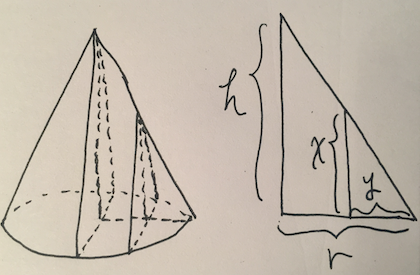 h
x
y
r